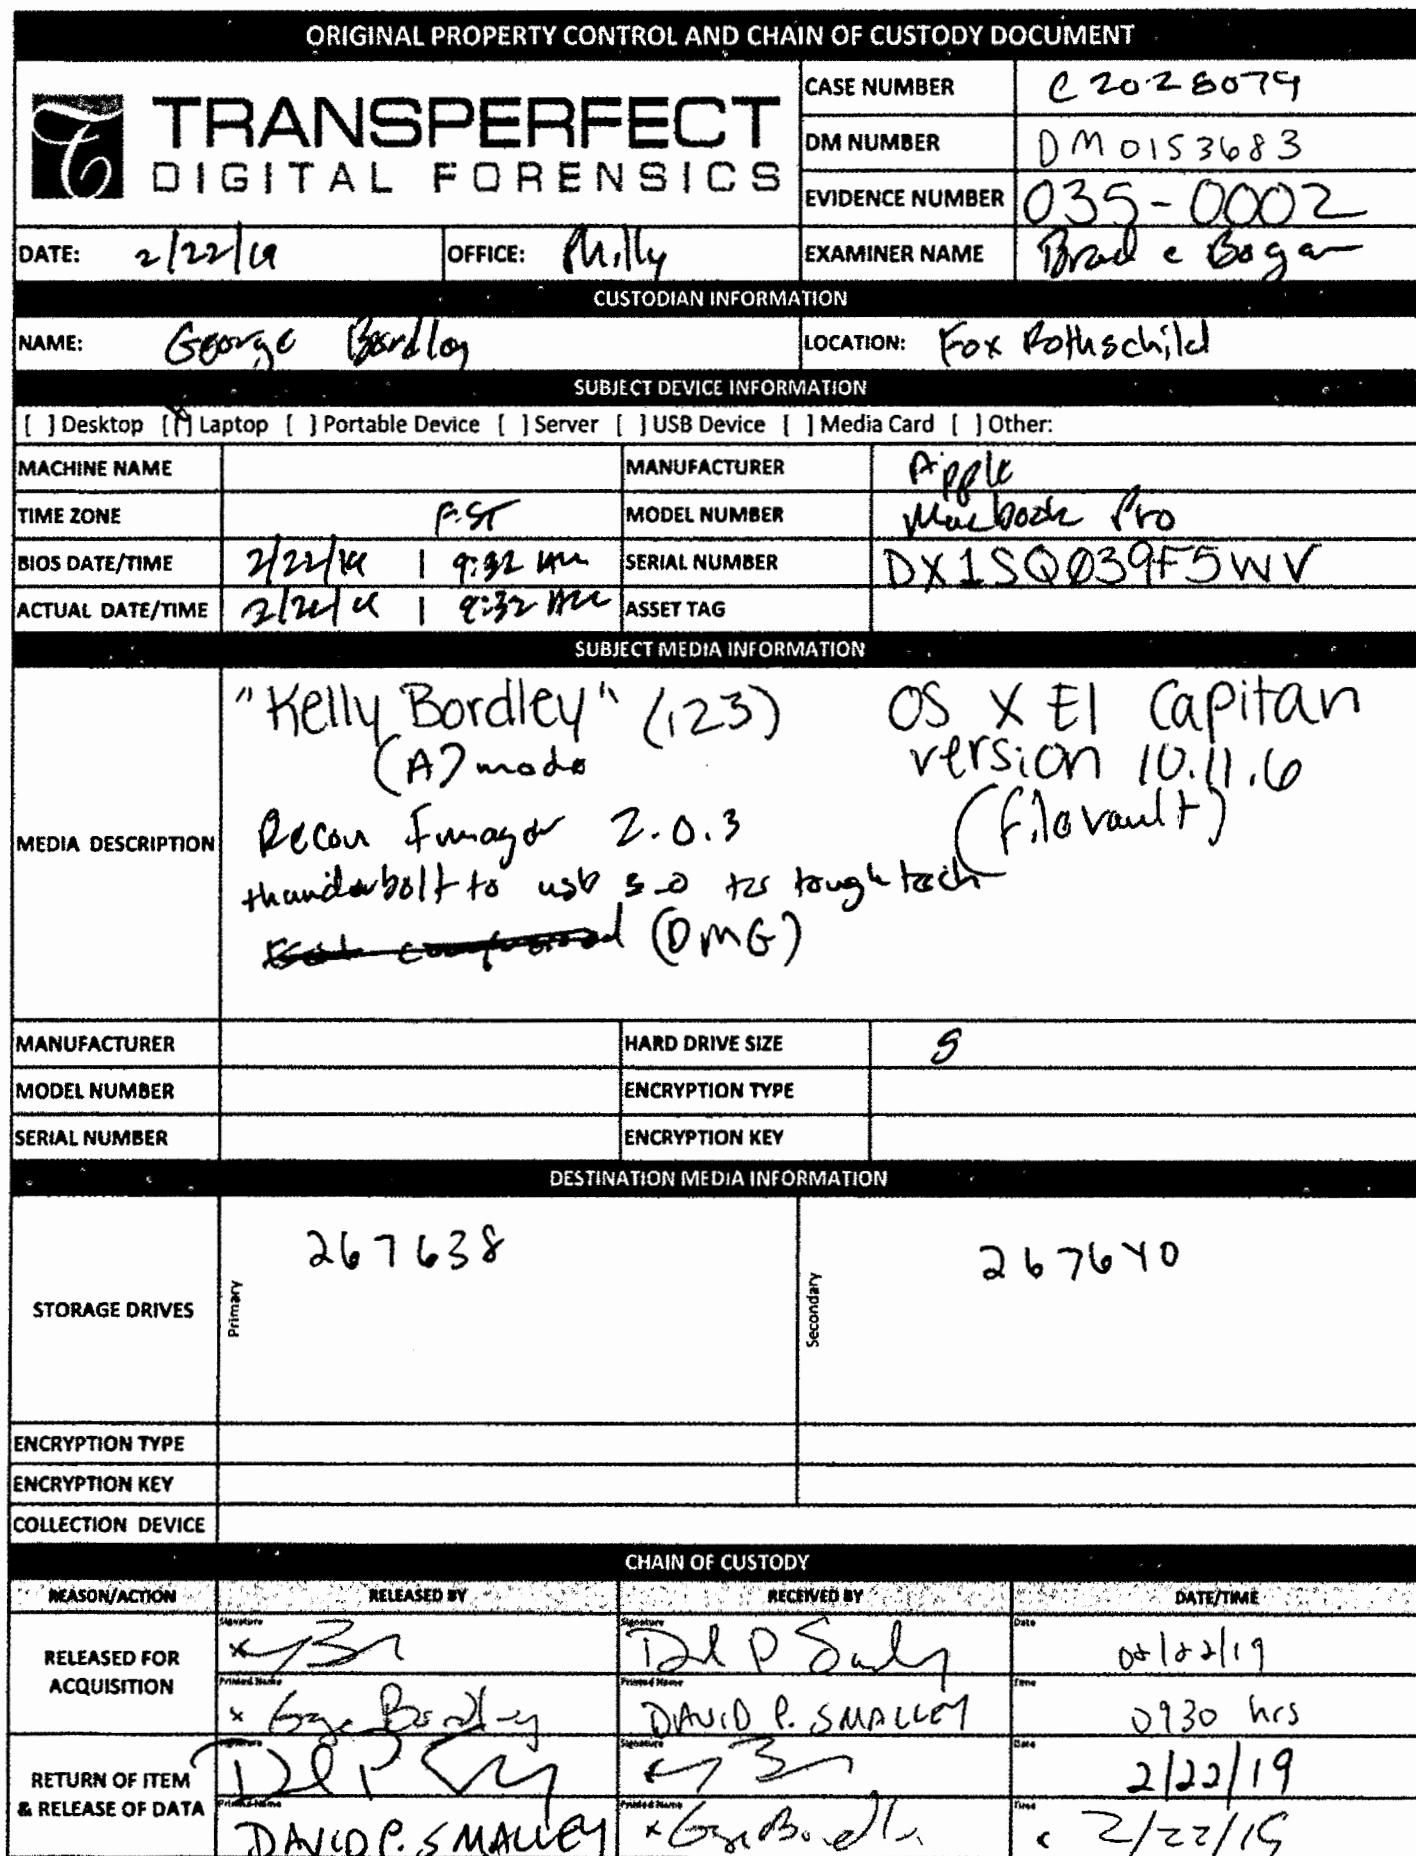 ORIGINAL PROPERTY CONTROL AND CHAIN OF CUSTODY DOCUMENT
TRANSPERFECT
DIGITAL FORENSICS
CASE NUMBER C2028079
DM NUMBER DM0153683
EVIDENCE NUMBER 035-0002
DATE: 2/22/19 OFFICE: Philly EXAMINER NAME Brad Bogan
CUSTODIAN INFORMATION
NAME: George Bordley LOCATION: Fox Rothschild
SUBJECT DEVICE INFORMATION
[ ] Desktop [X] Laptop [ ] Portable Device [ ] Server [ ] USB Device [ ] Media Card [ ] Other:
MACHINE NAME MANUFACTURER Apple
TIME ZONE EST MODEL NUMBER Macbook Pro
BIOS DATE/TIME 2/22/19 | 9:32 AM SERIAL NUMBER DX1SQ039F5WV
ACTUAL DATE/TIME 2/22/19 | 9:32 AM ASSET TAG
SUBJECT MEDIA INFORMATION
MEDIA DESCRIPTION
"Kelly Bordley" (123) OS X El Capitan
(A) mode version 10.11.6
Recon Imager 2.0.3 (filevault)
thunderbolt to usb 3.0 to tough tech
(DMG)
MANUFACTURER HARD DRIVE SIZE
MODEL NUMBER ENCRYPTION TYPE
SERIAL NUMBER ENCRYPTION KEY
DESTINATION MEDIA INFORMATION
STORAGE DRIVES Primary 267638 Secondary 267640
ENCRYPTION TYPE
ENCRYPTION KEY
COLLECTION DEVICE
CHAIN OF CUSTODY
REASON/ACTION RELEASED BY RECEIVED BY DATE/TIME
RELEASED FOR ACQUISITION
Signature x Signature Date 02/22/19
Printed Name x George Bordley Printed Name DAVID P. SMALLEY Time 0930 hrs
RETURN OF ITEM & RELEASE OF DATA
Signature Signature x Date 2/22/19
Printed Name DAVID P. SMALLEY Printed Name x George Bordley Time x 2/22/19